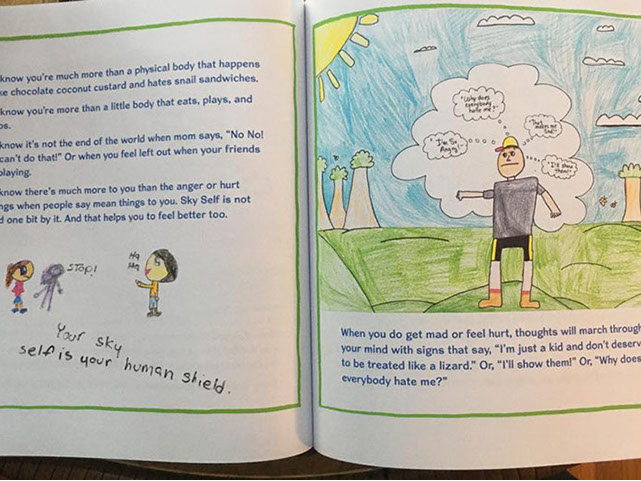 know you're much more than a physical body that happens
ke chocolate coconut custard and hates snail sandwiches.
know you're more than a little body that eats, plays, and
ps.
know it's not the end of the world when mom says, "No No!
can't do that!" Or when you feel left out when your friends
playing.
know there's much more to you than the anger or hurt
ngs when people say mean things to you. Sky Self is not
d one bit by it. And that helps you to feel better too.
STOP!
HA
HA
Your sky
self is your human shield.
"Why does
everybody
hate me?"
"I'm So
Angry!"
"That
makes me
Sad."
"I'll show
them!"
When you do get mad or feel hurt, thoughts will march through
your mind with signs that say, "I'm just a kid and don't deserv
to be treated like a lizard." Or, "I'll show them!" Or, "Why does
everybody hate me?"